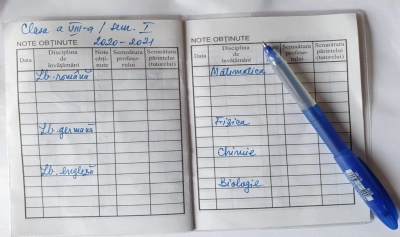 Clasa a VIII-a / sem. I
NOTE OBȚINUTE 2020-2021
Data
Disciplina
de
învățământ
Note
obți-
nute
Semnătura
profeso-
rului
Semnătura
părintelui
(tutorelui)
Lb. română
Lb. germană
Lb. engleză
NOTE OBȚINUTE
Data
Disciplina
de
învățământ
Semnătura
profeso-
rului
Semnătura
părintelui
(tutorelui)
Matematica
Fizica
Chimie
Biologie